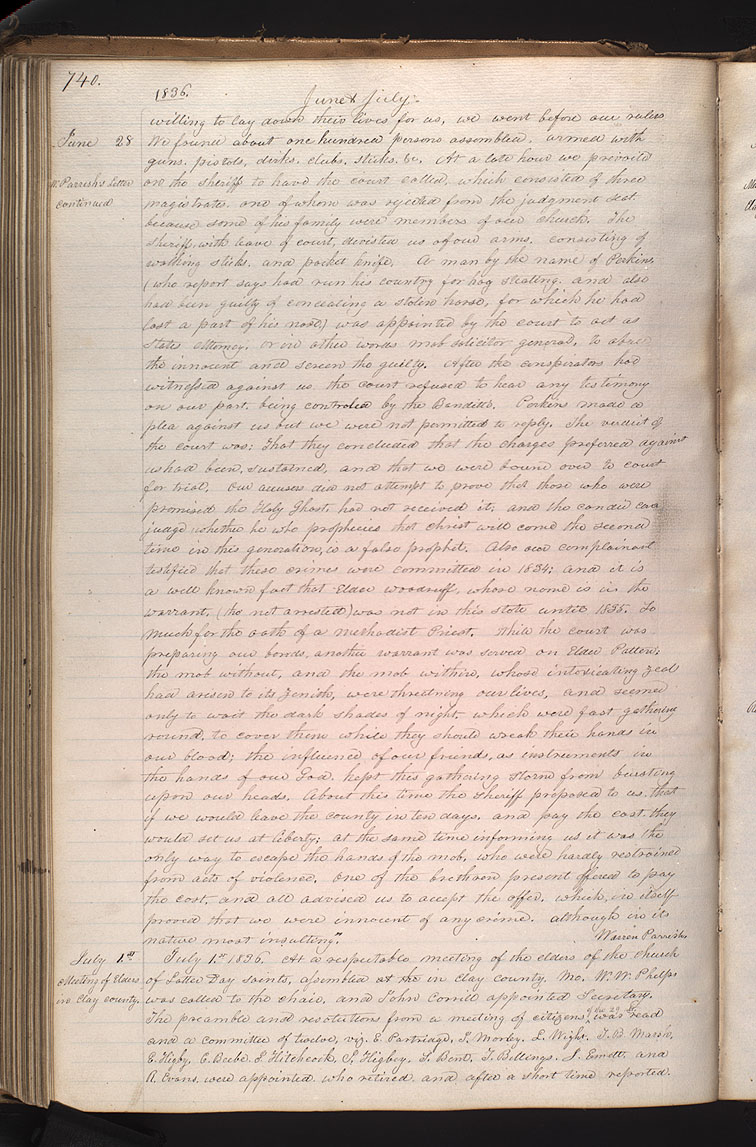 740.
1836.
June & July.
willing to lay down their lives for us, we went before our rulers
June 28
We found about one hundred persons assembled, armed with
guns, pistols, dirks, clubs, sticks, &c. At a late hour we prevailed
W. Parrish's Letter
on the sheriff to have the court called, which consisted of three
continued
magistrates, one of whom was rejected from the judgment seat,
because some of his family were members of our church. The
sheriff, with leave of court, divested us of our arms, consisting of
walking sticks, and pocket knife. A man by the name of Perkins,
(who report says had run his country for hog stealing, and also
had been guilty of concealing a stolen horse, for which he had
lost a part of his nose,) was appointed by the court to act as
States Attorney, or in other words mob solicitor general, to abuse
the innocent and screen the guilty. After the conspirators had
witnessed against us the court refused to hear any testimony
on our part, being controled by the Banditti. Perkins made a
plea against us but we were not permitted to reply. The verdict of
the court was; that they concluded that the charges preferred against
us had been, sustained, and that we were bound over to court
for trial. Our accusers did not attempt to prove that those who were
promised the Holy Ghost, had not received it; and the candid can
judge whether he who prophecies that Christ will come the second
time in this generation, is a false prophet. Also our complainant
testified that these crimes were committed in 1834; and it is
a well known fact that Elder Woodruff, whose name is in the
warrant, (tho not arrested) was not in this state until 1835. So
much for the oath of a methodist Priest. While the court was
preparing our bonds, another warrant was served on Elder Patten;
the mob without, and the mob within, whose intoxicating zeal
had arisen to its zenith, were threatning our lives, and seemed
only to wait the dark shades of night, which were fast gathering
round, to cover them while they should wreak their hands in
our blood; the influence of our friends, as instruments in
the hands of our God, kept this gathering storm from bursting
upon our heads. About this time the sheriff proposed to us, that
if we would leave the county in ten days, and pay the cost, they
would set us at liberty; at the same time informing us it was the
only way to escape the hands of the mob, who were hardly restrained
from acts of violence. One of the brethren present offered to pay
the cost, and all advised us to accept the offer, which, in itself
proved that we were innocent of any crime, although in its
nature most insulting."
Warren Parrish
July 1st
July 1st 1836. At a respectable meeting of the elders of the church
Meeting of Elders
of Latter Day Saints, assembled at the in Clay county, Mo. W. W. Phelps
in Clay county.
was called to the chair, and John Corrill appointed Secretary.
The preamble and resolutions from a meeting of citizens was read
and a committee of twelve, viz. E. Partridge, I. Morley, L. Wight, T. B. Marsh,
E. Higby, C. Beebe, I. Hitchcock, I. Higbey, S. Bent, T. Billings, J. Emett, and
R. Evans, were appointed, who retired and after a short time reported.